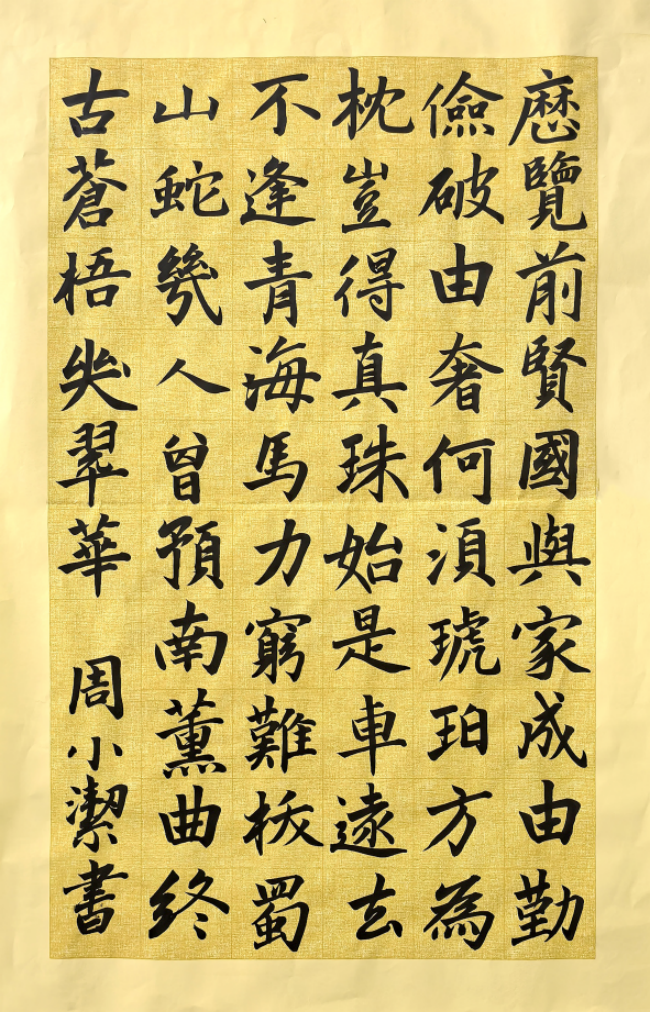 歷覽前賢國與家成由勤
儉破由奢何湏琥珀方為
枕豈得真珠始是車逺去
不逢青海馬力窮難拔蜀
山蛇幾人曾預南薰曲終
古蒼梧哭翠華
周小潔書